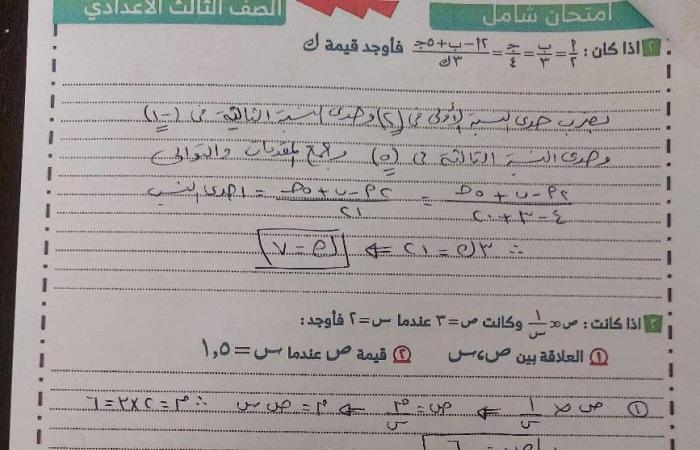 امتحان شامل
الصف الثالث الاعدادي
٢ اذا كان : أ/٢ = ب/٣ = ج/٤ = (٢أ - ب + ٥ج)/٣ك فأوجد قيمة ك
بضرب حدى النسبة الأولى فى (٢) وحدى النسبة الثانية فى (-١)
وحدى النسبة الثالثة فى (٥) وجمع المقدمات والتوالى
(٢أ - ب + ٥ج)/(٤ - ٣ + ٢٠) = (٢أ - ب + ٥ج)/٢١ = احدى النسب
∴ ٣ك = ٢١ ⇐ ك = ٧
٣ اذا كانت : ص ∝ ١/س وكانت ص = ٣ عندما س = ٢ فأوجد :
١ العلاقة بين ص ، س ٢ قيمة ص عندما س = ١,٥
١ ص ∝ ١/س ⇐ ص = م/س ⇐ م = ص س ∴ م = ٢ × ٣ = ٦